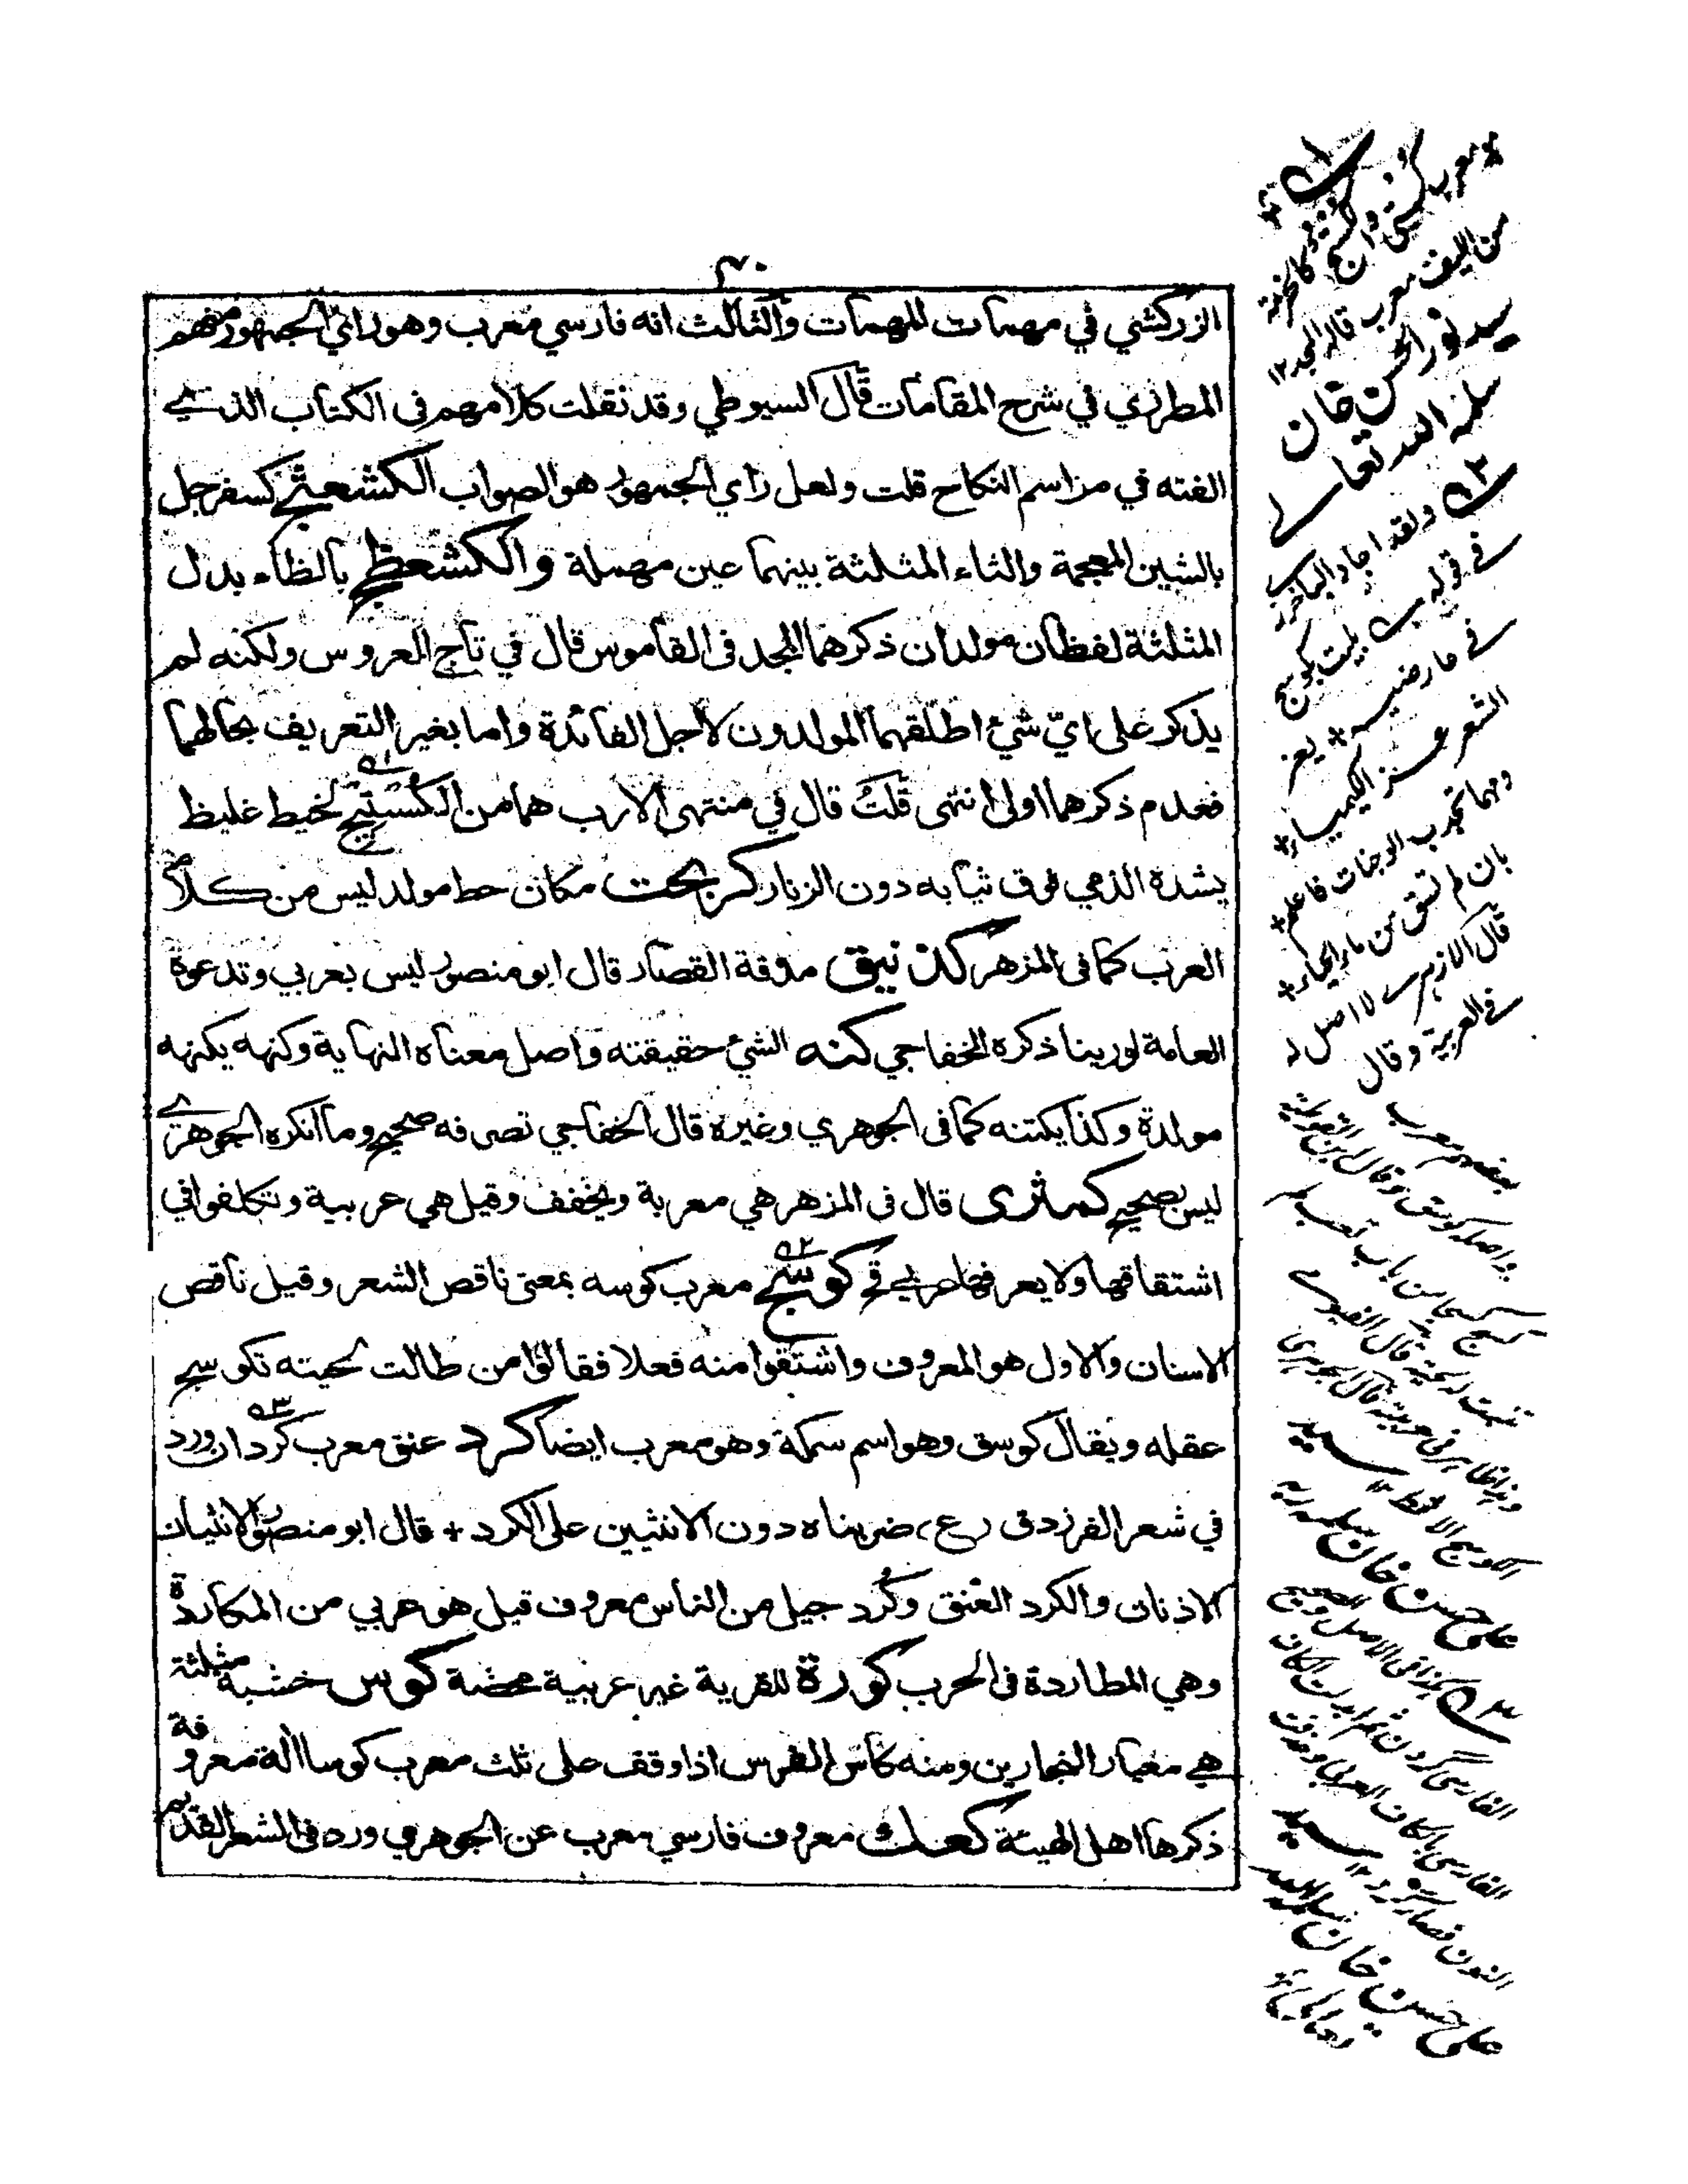 ٢٠
الزركشي في مهمات المهمات والثالث انه فارسي معرب وهو راي الجمهور منهم
المطرزي في شرح المقامات قال السيوطي وقد نقلت كلامهم فى الكتاب الذي
الفته في مراسم النكاح قلت ولعل راي الجمهور هو الصواب الكشعثج كسفرجل
بالشين المعجمة والثاء المثلثة بينهما عين مهملة والكشعظج بالظاء بدل
المثلثة لفظان مولدان ذكرهما المجد فى القاموس قال في تاج العروس ولكنه لم
يذكر على ايّ شئ اطلقهما المولدون لاجل الفائدة واما بغير التعريف بحالهما
فعدم ذكرهما اولى انتهى قلتُ قال في منتهى الارب هما من الكُستيج لخيط غليظ
يشده الذمي فوق ثيابه دون الزنار كربحت مكان حط مولد ليس من كلام
العرب كما فى المزهر كذنيق مدقة القصار قال ابو منصور ليس بعربي وتدعوه
العامة لورينا ذكره الخفاجي كنه الشئ حقيقته واصل معناه النهاية وكنهه يكنهه
مولدة وكذا يكتنه كما فى الجوهري وغيره قال الخفاجي تصرفه صحيح وما انكره الجوهري
ليس بصحيح كمثرى قال فى المزهر هي معربة ويخفف وقيل هي عربية وتكلفوا في
اشتقاقها ولا يعرفها عربي قح كوسج معرب كوسه بمعنى ناقص الشعر وقيل ناقص
الاسنان والاول هو المعروف واشتقوا منه فعلا فقالوا من طالت لحيته تكوسج
عقله ويقال كوسق وهو اسم سمكة وهو معرب ايضا كرد عنق معرب كردان ورد
في شعر الفرزدق (ع) ضربناه دون الانثيين على الكرد + قال ابو منصور الانثيان
الاذنان والكرد العنق وكُرد جيل من الناس معروف قيل هو عربي من المكاردة
وهي المطاردة فى الحرب كورة للقرية غير عربية محضة كوس خشبة مثلثة
هي معيار النجارين ومنه كاس الفرس اذا وقف على ثلث معرب كوسا آلة معروفة
ذكرها اهل الهيئة كعك معروف فارسي معرب عن الجوهري ورد فى الشعر القديم
من الليف معرب قاله المجد ١٢
سيد نور الحسن خان
سلمه الله تعالى
ولقد اجاد الباخرزي
في قوله
الشعر عنز الكيمياء
قال الازهري لا اصل له
في العربية وقال
بعضهم معرب
واصله كوسق وقال ابن القوطية
سيد
علي حسن خان سلمه ربه
الفارسي بالكاف العربي وحذفت
النون فصار كرد ١٢
سيد
علي حسن خان سلمه الله